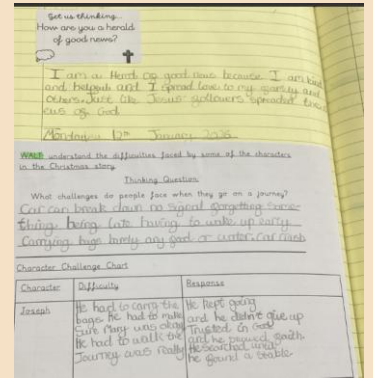 Get us thinking...
How are you a herald
of good news?
I am a Herod of good news because I am kind
and helpful and I spread love to my family and
others. Just like Jesus' followers spreaded the
of God
Monday 12th January 2026
WALT understand the difficulties faced by some of the characters
in the Christmas story.
Thinking Question
What challenges do people face when they go on a journey?
Car can break down no signal forgetting some-
thing being late having to wake up early
Carrying bags barely any food or water, car crash
Character Challenge Chart
Character Difficulty Response
Joseph
He had to carry the
bags He had to make
Sure Mary was okay
He had to walk the
Journey was really
He kept going
and he didn't give up
Trusted in God
and he prayed
He searched until
he found a stable